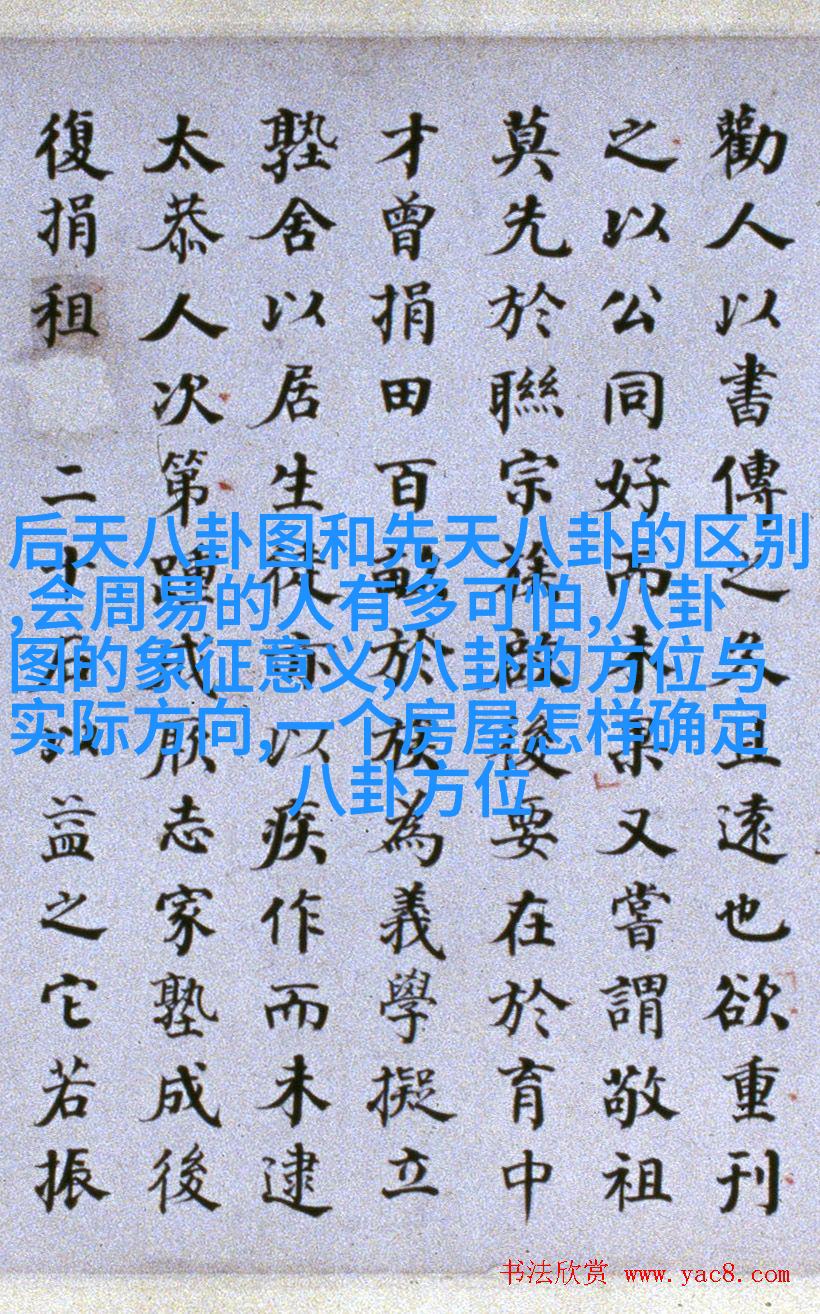 勸人以書傳之久且遠也欲重刊
之以公同好而未果又嘗謂敬祖
莫先於聯宗啟後要在於育中
才曾捐田百畝於族為義學擬立
塾舍以居生徒亦以疾作而未逮
太恭人次第踵成厥志家塾成後
復捐租二十石以益之它若振
后天八卦图和先天八卦的区别
,会周易的人有多可怕,八卦
图的象征意义,八卦的方位与
实际方向,一个房屋怎样确定
八卦方位
书法欣赏 www.yac8.com